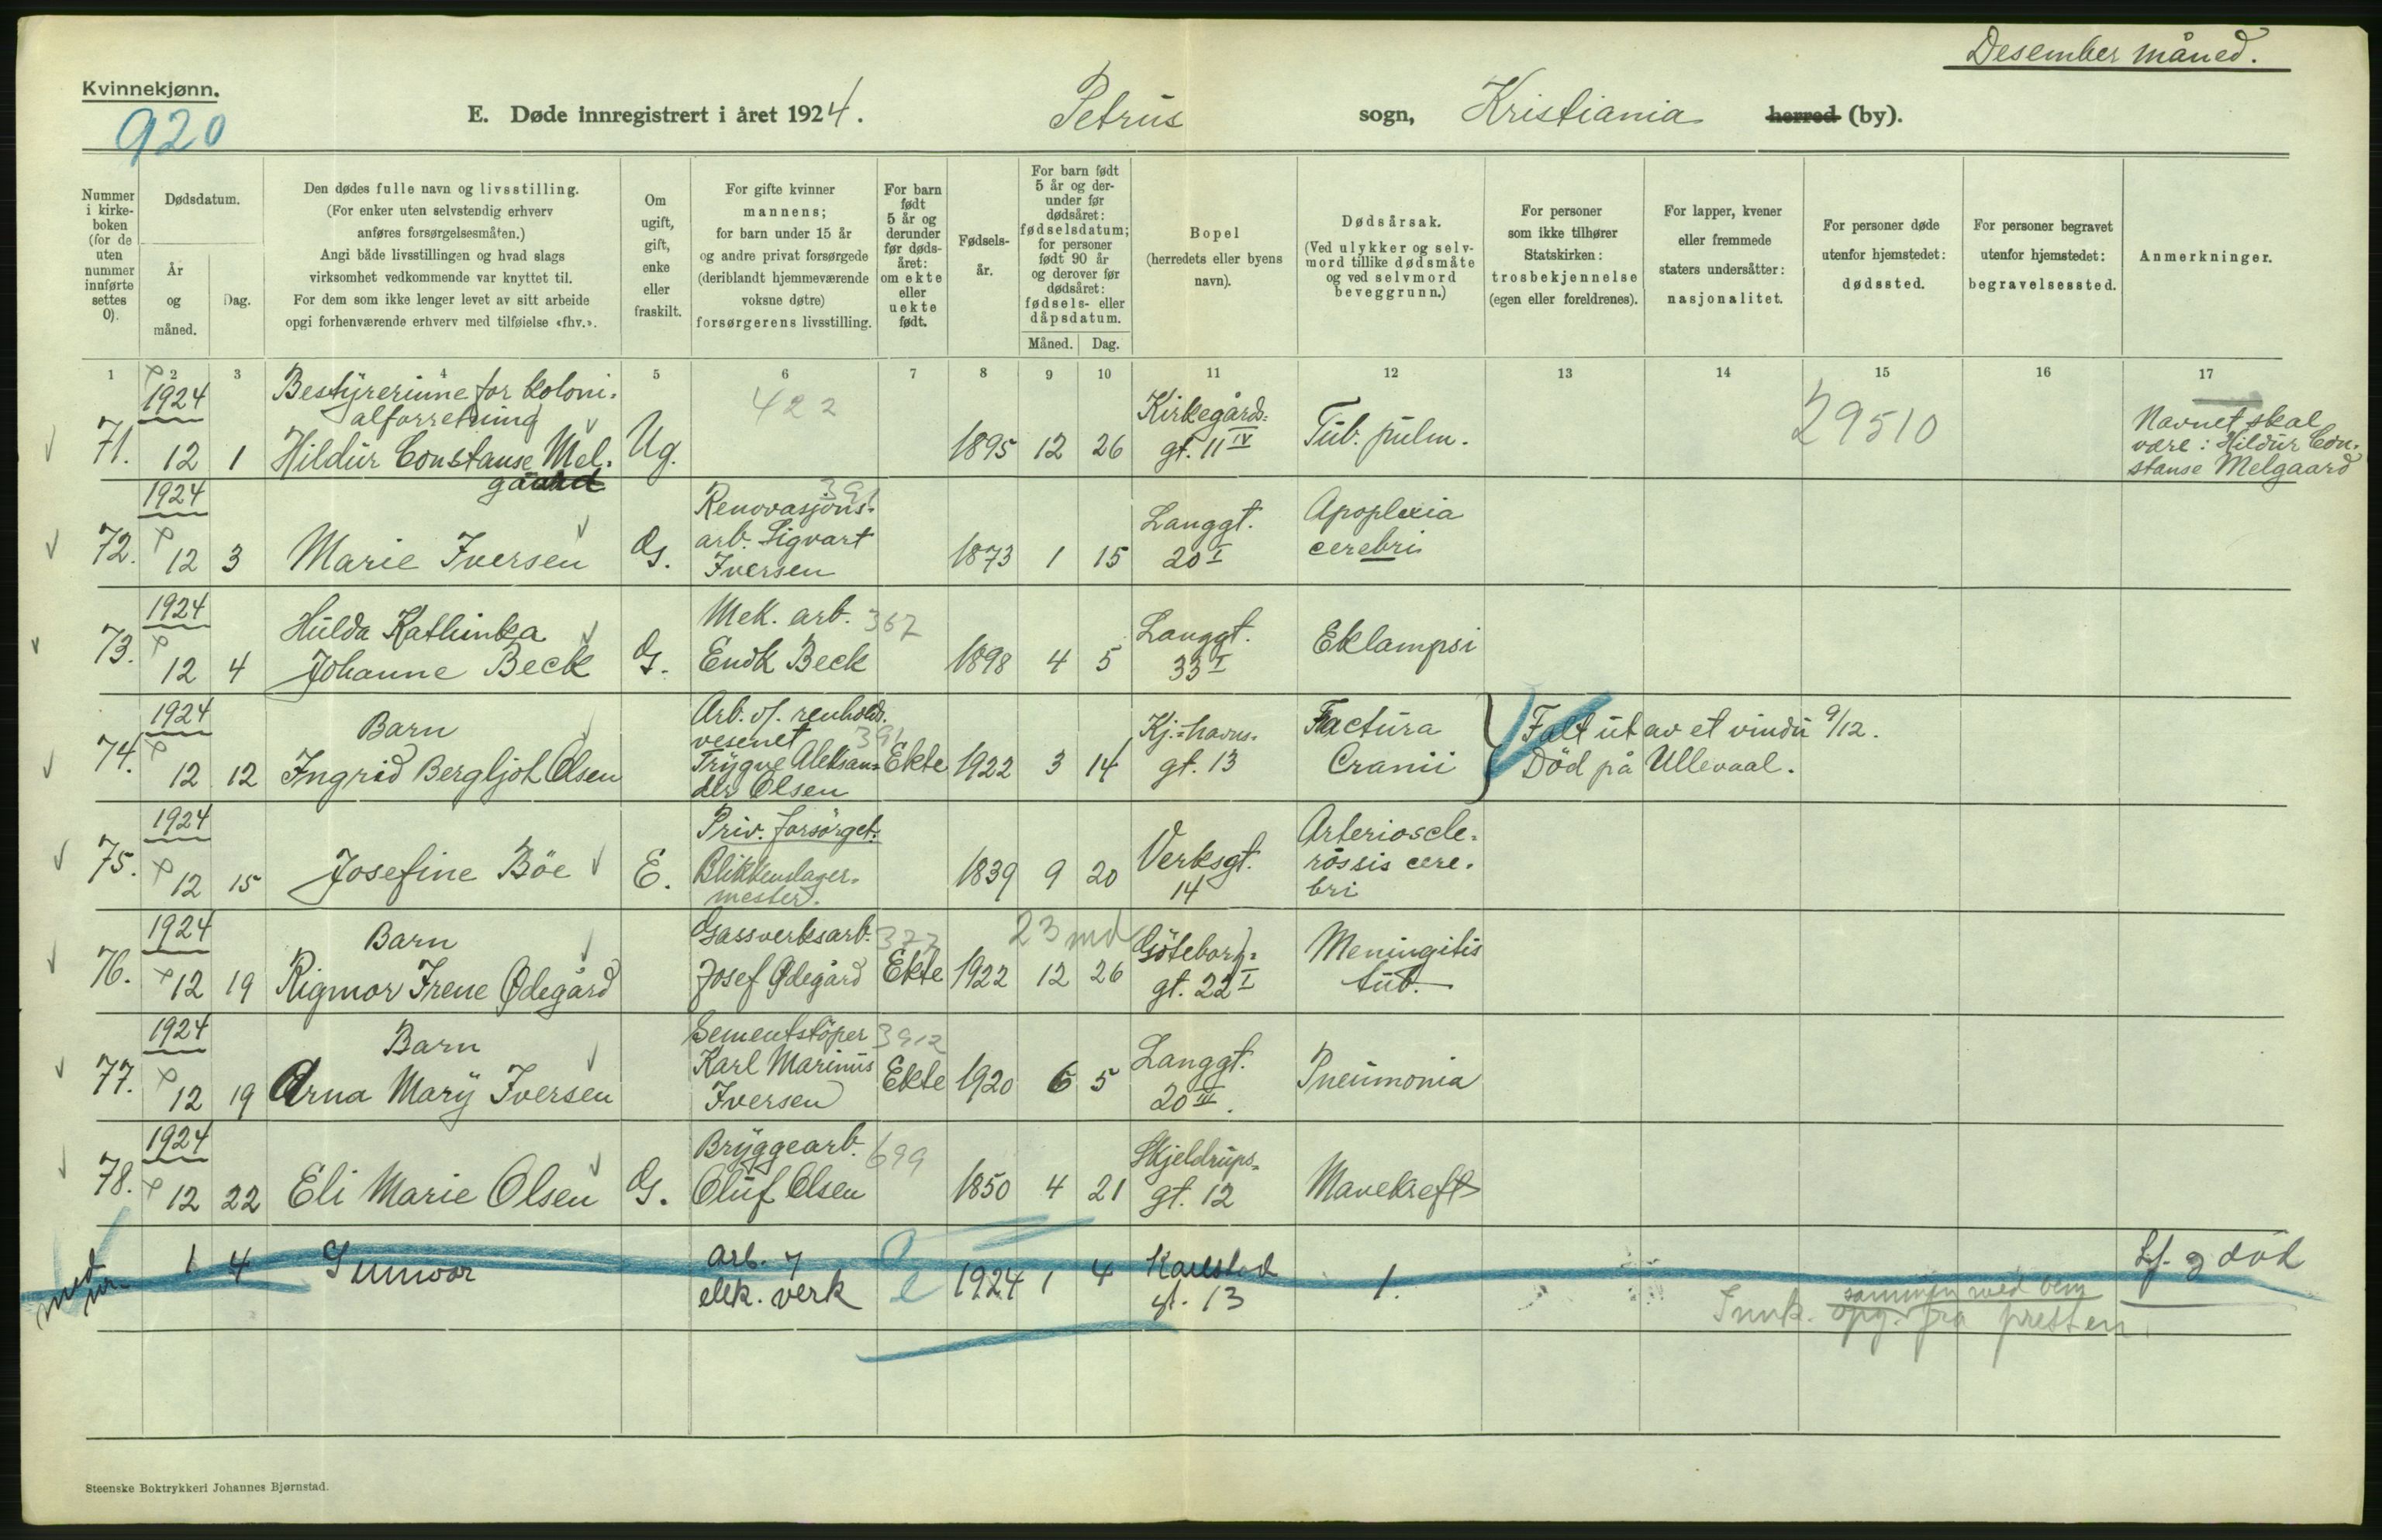 Desember måned.
Kvinnekjønn.
920
E. Døde innregistrert i året 1924.
Petrus sogn, Kristiania herred (by).
Nummer i kirke-boken (for de uten nummer innførte settes 0).
Dødsdatum.
År og måned.
Dag.
Den dødes fulle navn og livsstilling.
(For enker uten selvstendig erhverv
anføres forsørgelsesmåten.)
Angi både livsstillingen og hvad slags
virksomhet vedkommende var knyttet til.
For dem som ikke lenger levet av sitt arbeide
opgi forhenværende erhverv med tilføielse «fhv.».
Om
ugift,
gift,
enke
eller
fraskilt.
For gifte kvinner
mannens;
for barn under 15 år
og andre privat forsørgede
(deriblandt hjemmeværende
voksne døtre)
forsørgerens livsstilling.
For barn
født
5 år og
derunder
før døds-
året:
om ekte
eller
uekte
født.
Fødsels-
år.
For barn født
5 år og der-
under før
dødsåret:
fødselsdatum;
for personer
født 90 år
og derover før
dødsåret:
fødsels- eller
dåpsdatum.
Måned. Dag.
Bopel
(herredets eller byens
navn).
Dødsårsak.
(Ved ulykker og selv-
mord tillike dødsmåte
og ved selvmord
beveggrunn.)
For personer
som ikke tilhører
Statskirken:
trosbekjennelse
(egen eller foreldrenes).
For lapper, kvener
eller fremmede
staters undersåtter:
nasjonalitet.
For personer døde
utenfor hjemstedet:
dødssted.
For personer begravet
utenfor hjemstedet:
begravelsessted.
Anmerkninger.
1 2 3 4 5 6 7 8 9 10 11 12 13 14 15 16 17
71. 1924 12 1
Bestyrerinne for koloni-
alforretning
Hildur Constanse Mel-
gaard
Ug.
422
1895 12 26
Kirkegårds-
gt. 11 IV
Tub. pulm.
29510
Navnet skal
være: Hildur Con-
stanse Melgaard
72. 1924 12 3
Marie Iversen
G.
391
Renovasjons-
arb. Sigvart
Iversen
1873 1 15
Langgt.
20 I
Apoplexia
cerebri
73. 1924 12 4
Hulda Kathinka
Johanne Beck
G.
Mek. arb. 367
Endk Beck
1898 4 5
Langgt.
33 I
Eklampsi
74. 1924 12 12
Barn
Ingrid Bergljot Olsen
Arb. v/. renholds-
vesenet 391
Trygve Aleksan-
der Olsen
Ekte
1922 3 14
Kj.-havns-
gt. 13
Factura
Cranii
Falt ut av et vindu 9/12.
Död på Ullevaal.
75. 1924 12 15
Josefine Böe
E.
Priv. forsörget.
Blikkenslager-
mester.
1839 9 20
Verksgt.
14
Arterioscle-
rossis cere-
bri
76. 1924 12 19
Barn
Rigmor Irene Ødegård
Gassverksarb. 377
Josef Ødegård
Ekte
23 md
1922 12 26
Göteborg-
gt. 22 I
Meningitis
tub.
77. 1924 12 19
Barn
Arna Mary Iversen
Sementstöper 3912
Karl Marinus
Iversen
Ekte
1920 6 5
Langgt.
20 III.
Pneumonia
78. 1924 12 22
Eli Marie Olsen
G.
Bryggearb. 699
Oluf Olsen
1850 4 21
Skjeldrups-
gt. 12
Mavekreft
1 4
Gunvor
arb. 7
elek. verk
e
1924 1 4
Karlstad
gt. 13
1.
Lf. g död
sammen med dem
Innk. opg. fra presten.
Steenske Boktrykkeri Johannes Bjørnstad.